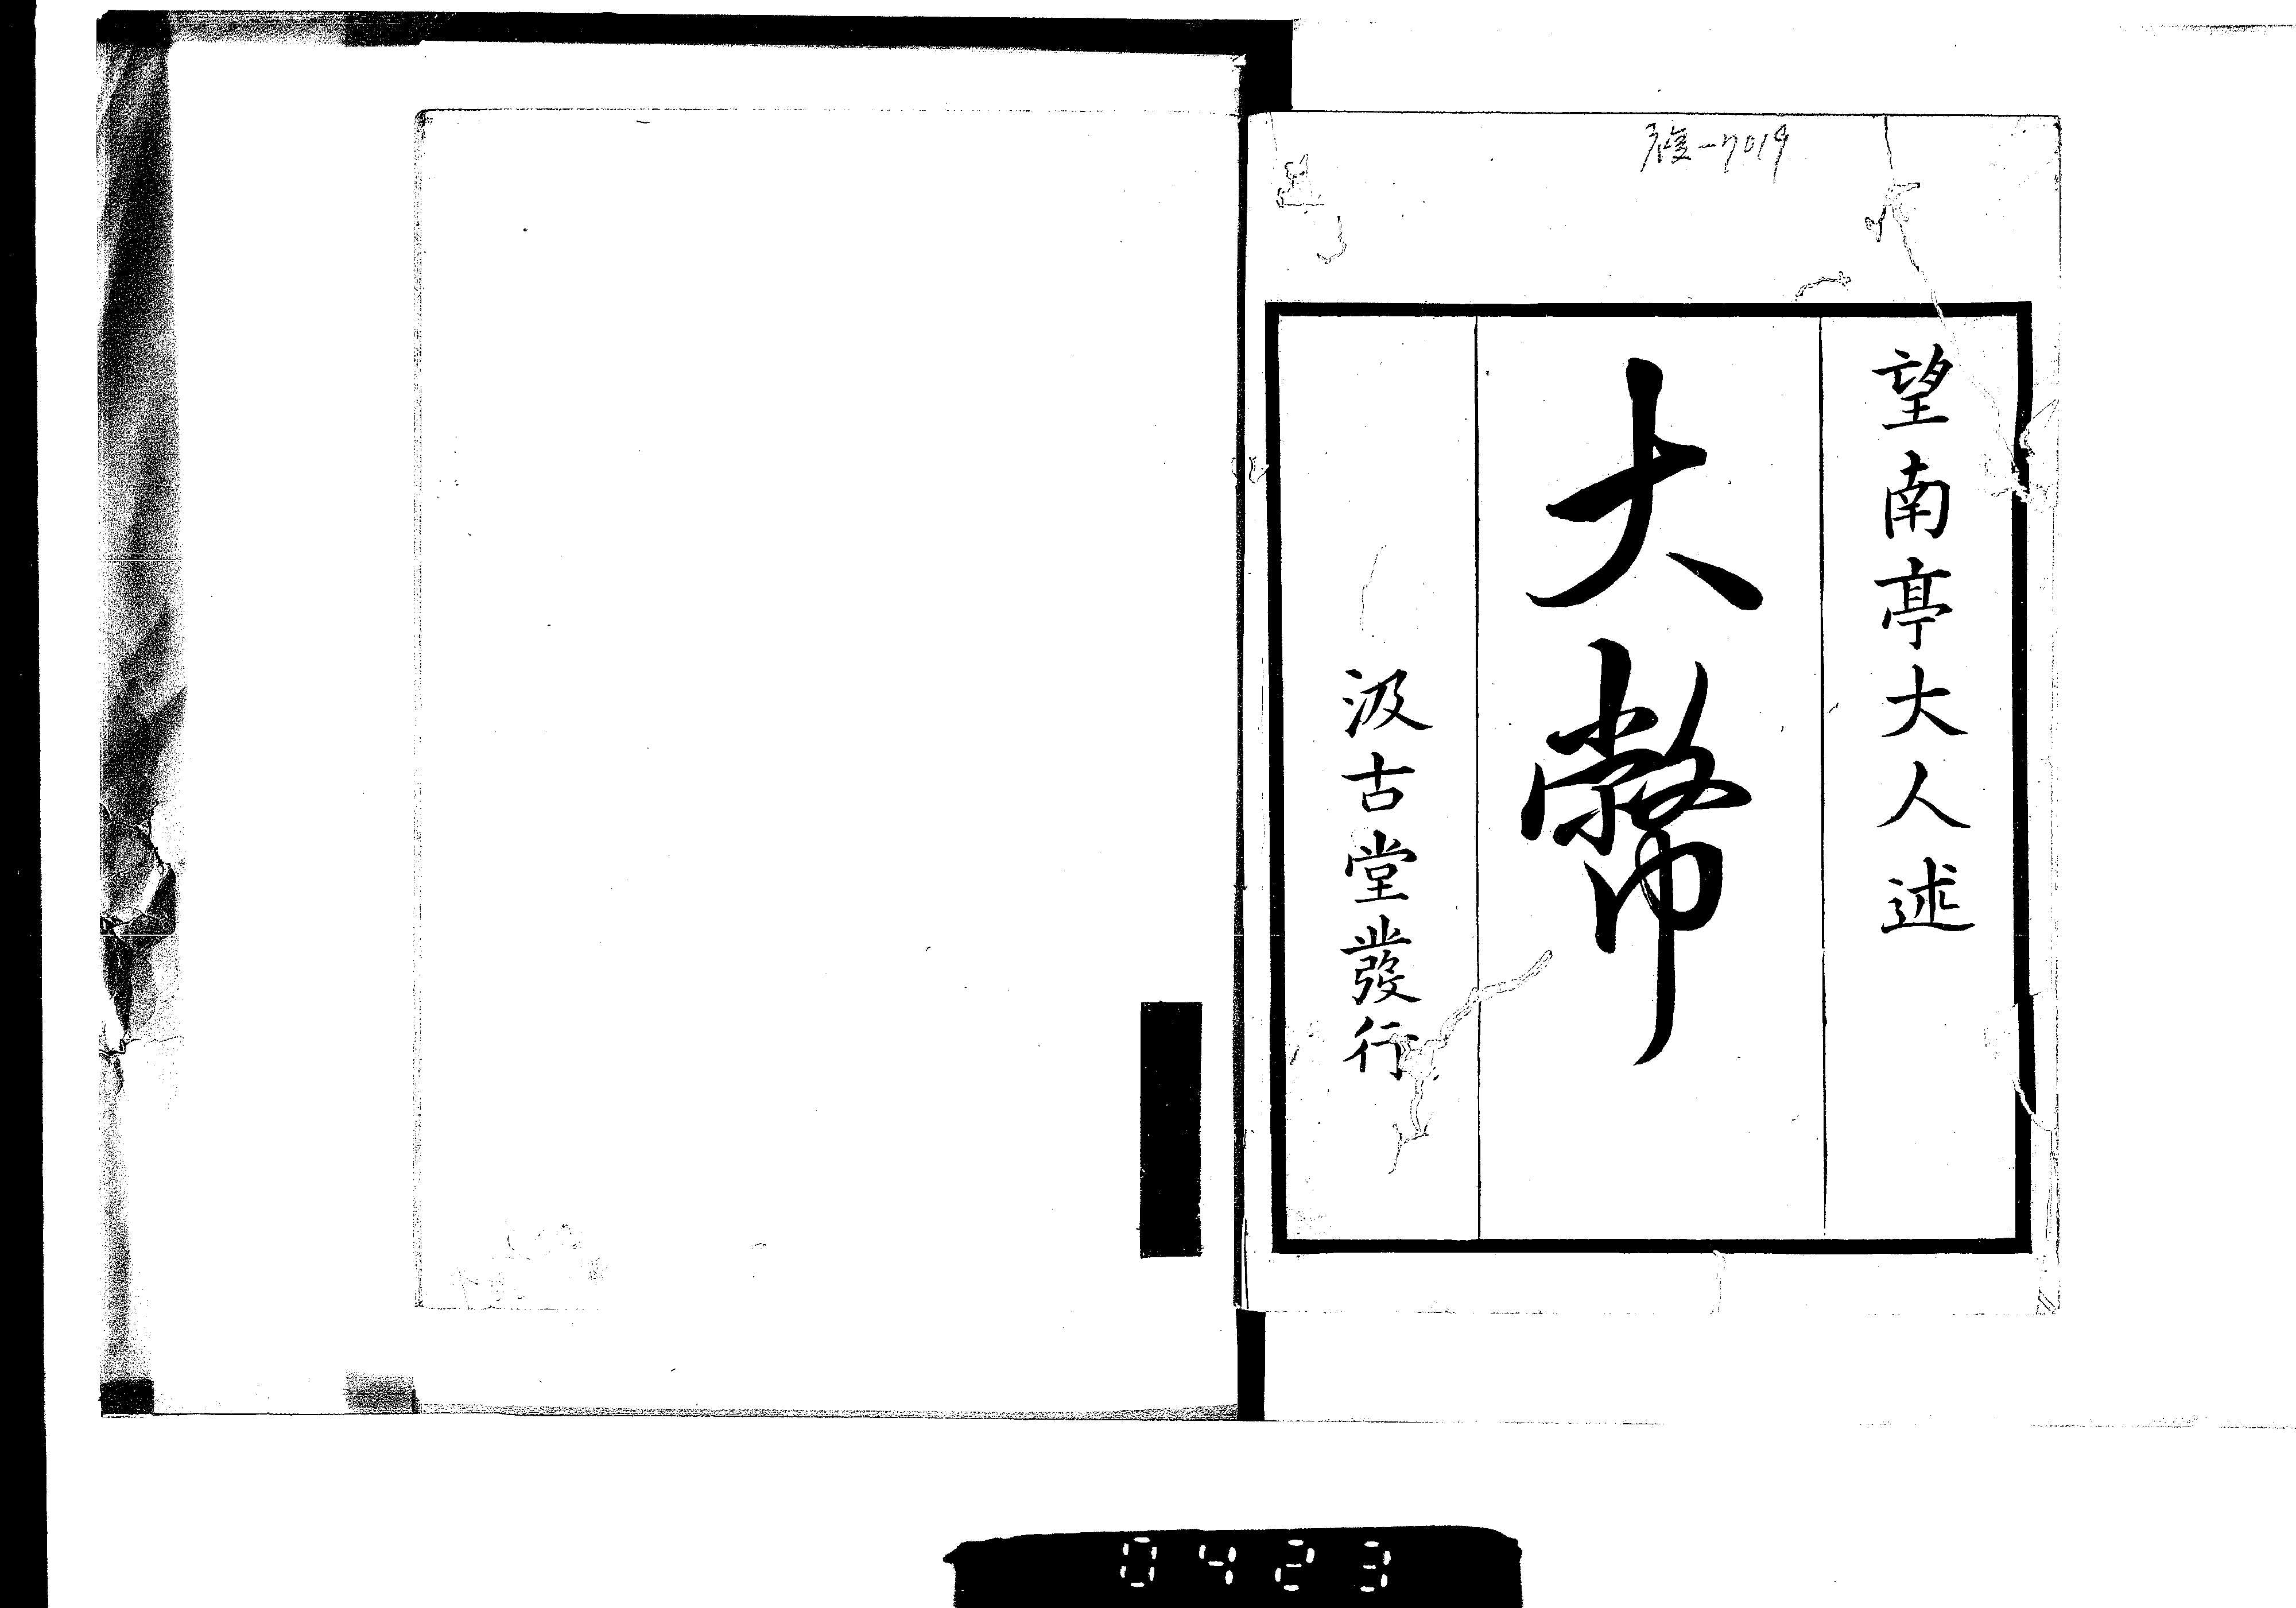 望南亭大人述
大幣
汲古堂發行
複-7019
0423